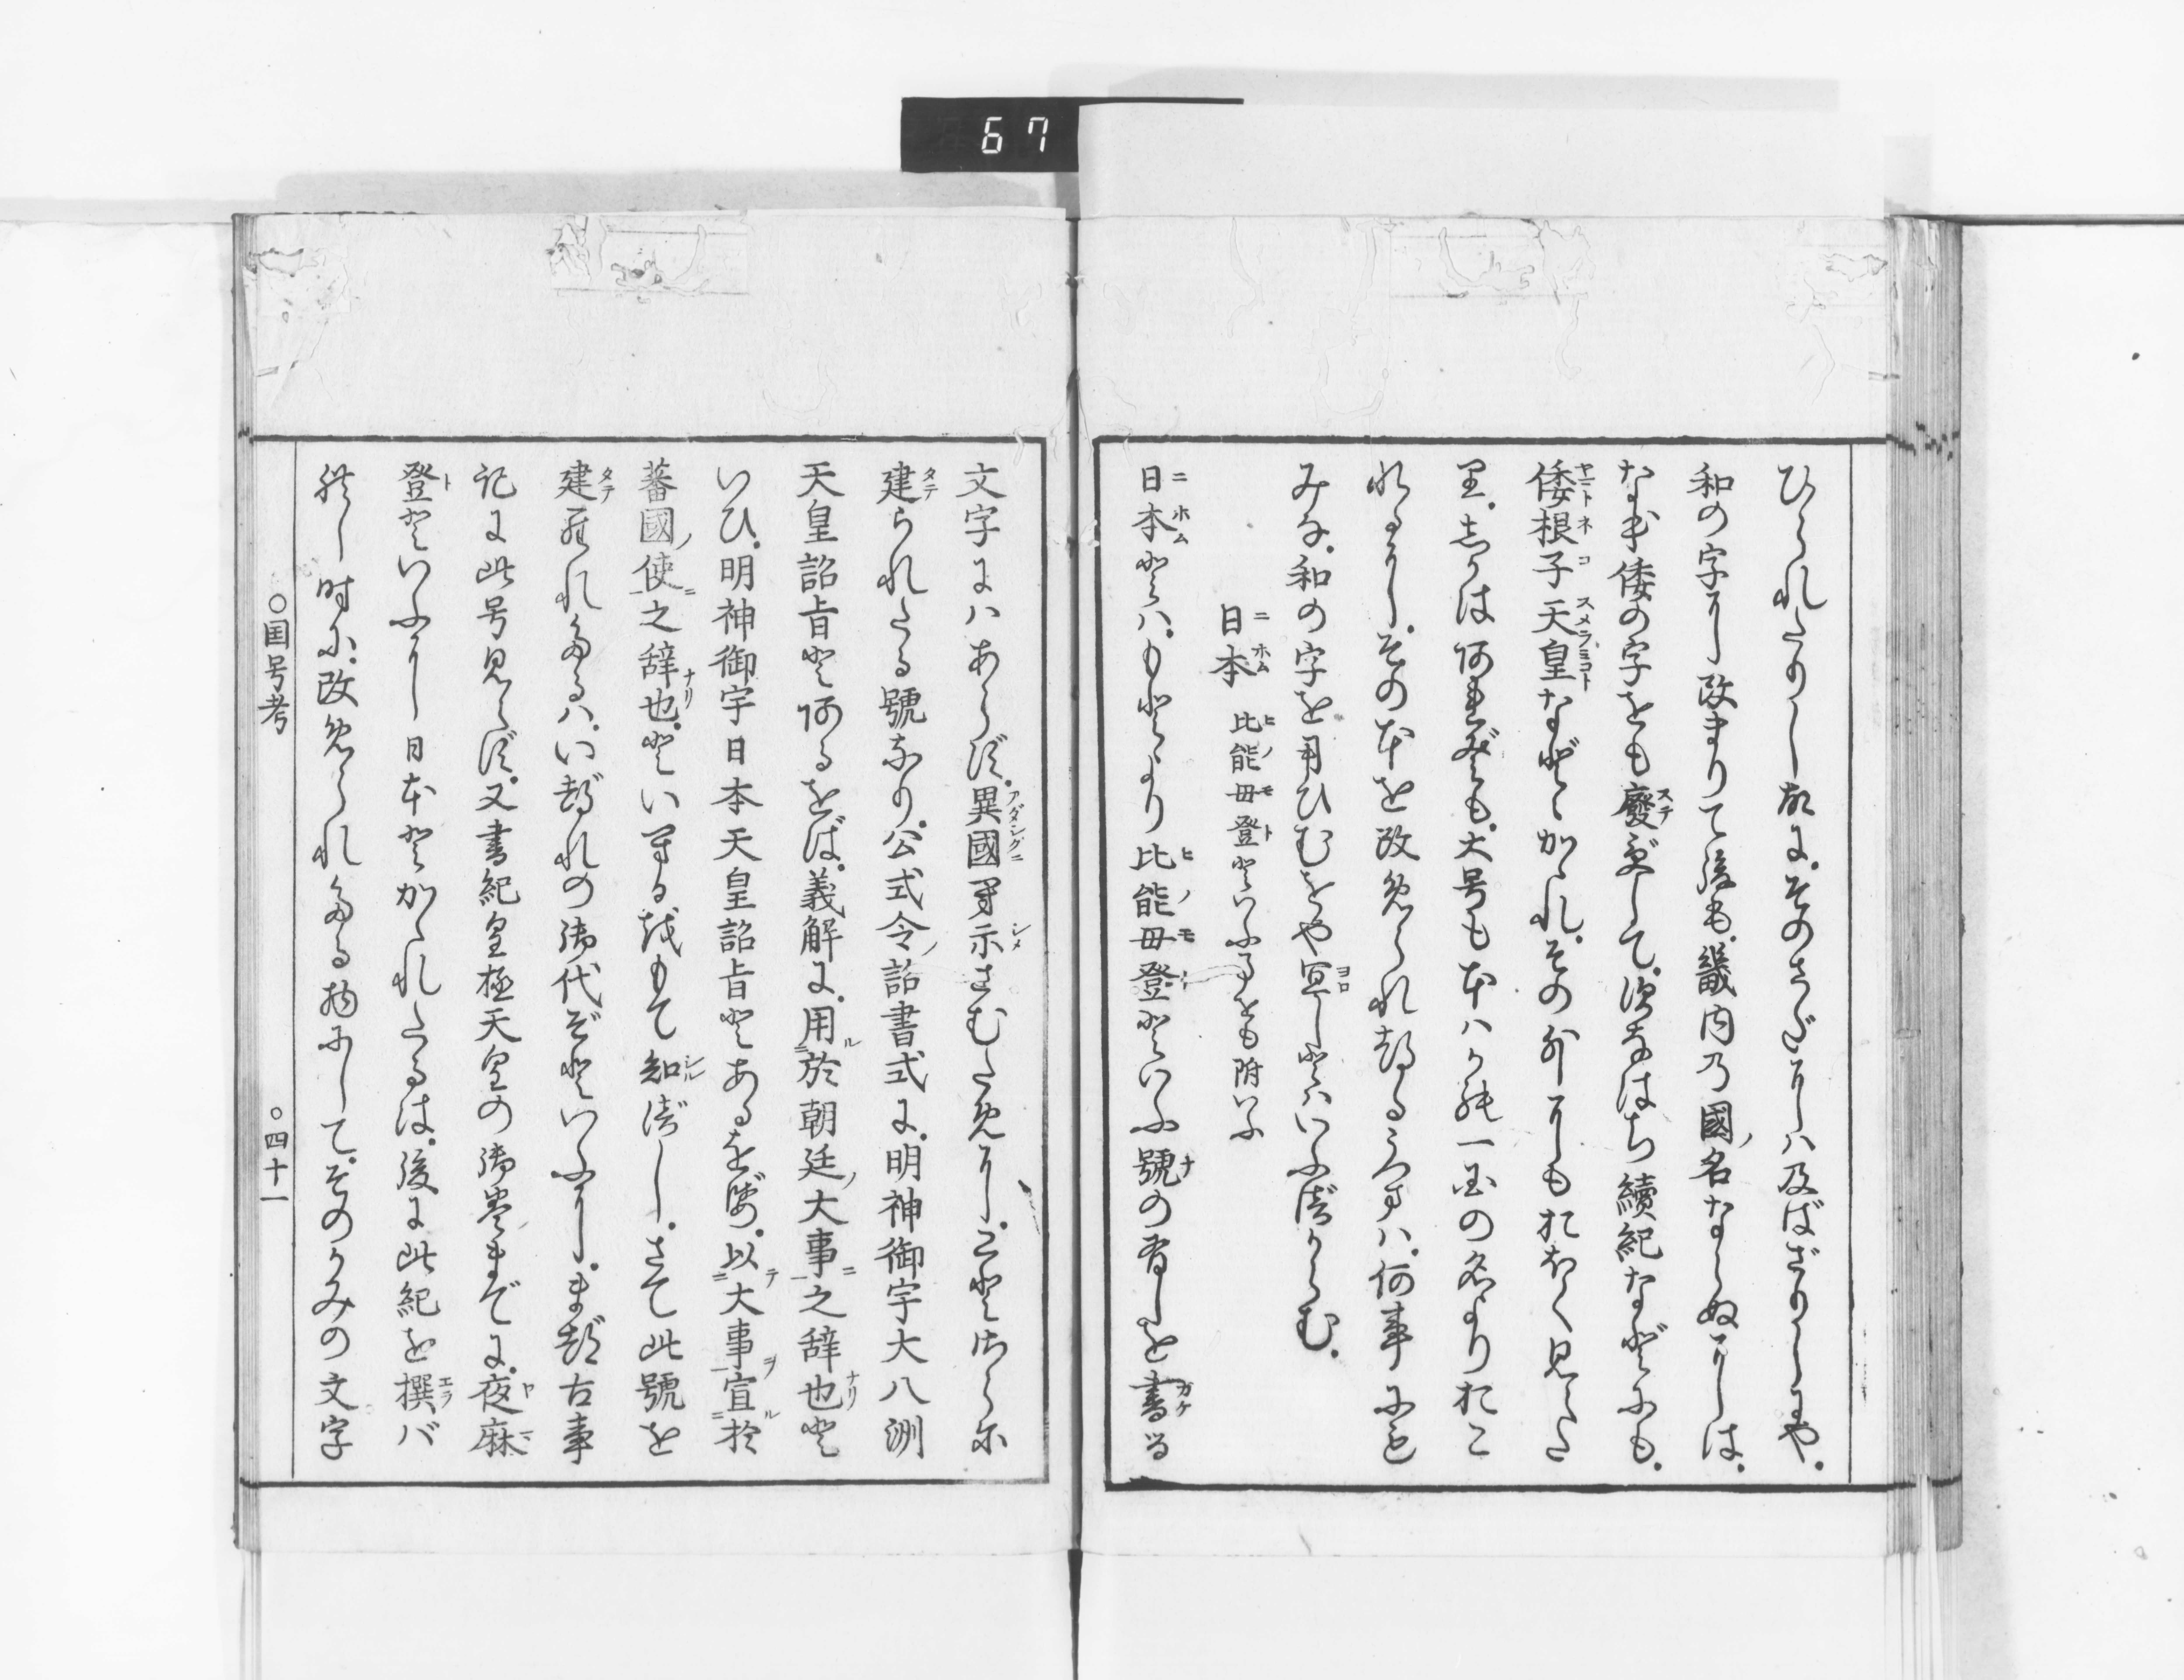 67
ひられたりし故に、そのさだにハ及ばざりしにや、
和の字に改まりて後も、畿内の國ノ名ならぬには、
なほ倭の字をも廢ずして、すなはち續紀などにも、
倭根子天皇などかゝれ、その外にもおほく見えた
里、しかはあれども、大号も本ハかの一國の名よりおこ
れるに、その本を改められたるうへハ、何事にも
みな、和の字を用ひむをや宜しとハいふべからむ、
日本 比能毋登といふ事をも附いふ
日本とハ、もとより比能毋登といふ號の有しを書る
文字にハあらず、異國へ示さむために、ことさらに
建られたる號なり、公式令ノ詔書式に、明神御宇大八洲
天皇詔旨とあるをば、義解に、用於朝廷ノ大事之辞也と
いひ、明神御宇日本天皇詔旨とあるをば、以大事宣於
蕃國ノ使之辞也、といへるをもて知べし、さて此號を
建られたるハ、いづれの御代ぞといふに、まづ古事
記に此号見えず、又書紀皇極天皇の御巻までに、夜麻
登といふに日本とかゝれたるは、後に此紀を撰バ
れし時に、改められたる物にして、そのかみの文字
○国号考
○四十一